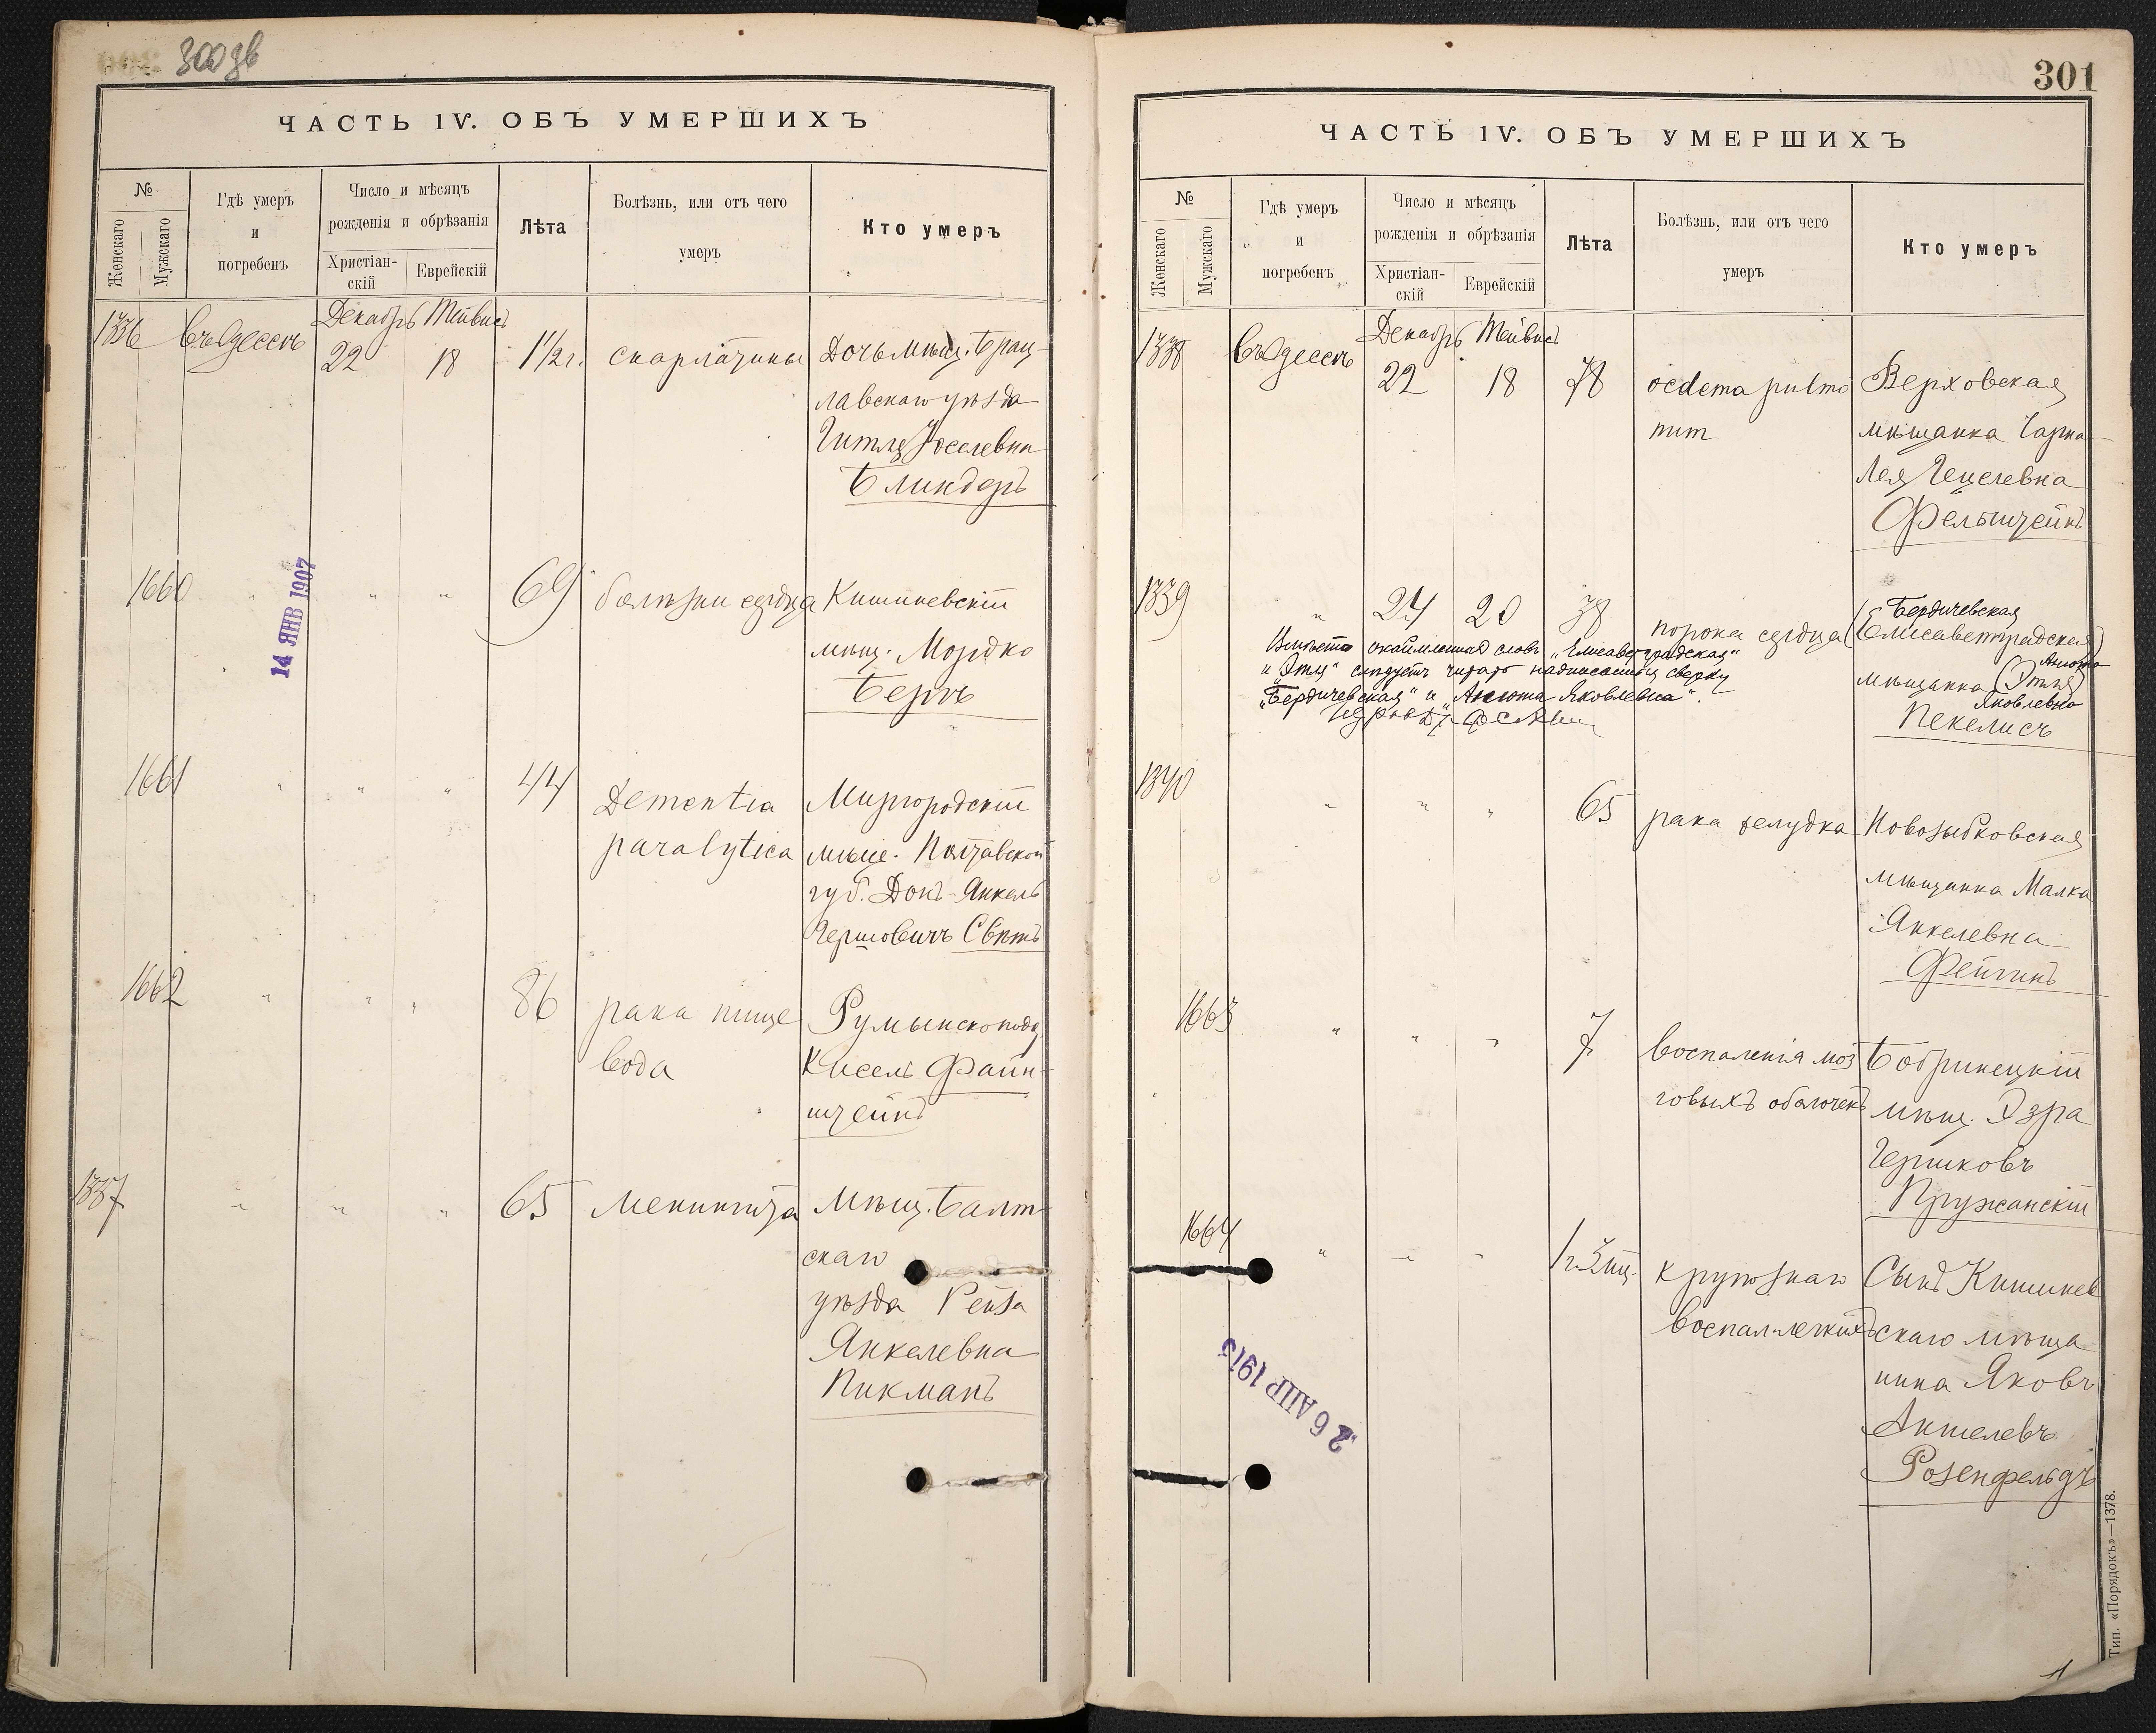 300 об
ЧАСТЬ IV. ОБЪ УМЕРШИХЪ
№
Женскаго
Мужскаго
Гдѣ умеръ
и
погребенъ
Число и мѣсяцъ
рожденія и обрѣзанія
Христіан-
скій
Еврейскій
Лѣта
Болѣзнь, или отъ чего
умеръ
Кто умеръ
1336 Въ Одессѣ Декабрь Тейвисъ
22 18 1 1/2 г. скарлатины Дочь мѣщ. Брац-
лавскаго уѣзда
Гитля Іоселевна
Блиндеръ
14 ЯНВ 1907
1660 " " " 69 болѣзни сердца Кишиневскій
мѣщ. Мордко
Берчъ
1661 " " " 44 Dementia Миргородскій
paralytica мѣщ. Полтавской
губ. Донъ-Янкель
Гершовичъ Свѣтъ
1662 " " " 86 рака пище Румынскоподд.
вода Кисель Файн-
штейнъ
1337 " " " 65 Менингита Мѣщ. Балт-
скаго
уѣзда Рейза
Янкелевна
Пикманъ
301
ЧАСТЬ IV. ОБЪ УМЕРШИХЪ
№
Женскаго
Мужскаго
Гдѣ умеръ
и
погребенъ
Число и мѣсяцъ
рожденія и обрѣзанія
Христіан-
скій
Еврейскій
Лѣта
Болѣзнь, или отъ чего
умеръ
Кто умеръ
1338 Въ Одессѣ Декабрь Тейвисъ
22 18 78 oedema pulmo Верховская
num мѣщанка Чарна-
Лея Гецелевна
Фельштейнъ
1339 " 24 20 38 порока сердца Бердичевская
(Елисаветградская)
мѣщанка (Этля) Анюта
Яковлевна
Пекелисъ
Вмѣсто окаймленныхъ словъ „Елисаветградская"
и „Этля" слѣдуетъ читать надписанныя сверху
„Бердичевская" и „Анюта Яковлевна".
1340 " " " 65 рака желудка Новозыбковская
мѣщанка Малка
Янкелевна
Фейгинъ
1663 " " " 7 Воспаленія моз Бобринецкій
говыхъ оболочекъ мѣщ. Эзра
Гершковъ
Пружанскій
1664 " " " крупознаго Сынъ Кишинев
воспал. легкихъ скаго мѣща
нина Яковъ
Аншелевъ
Розенфельдъ
26 АПР 1913
Тип. «Порядокъ»—1378.